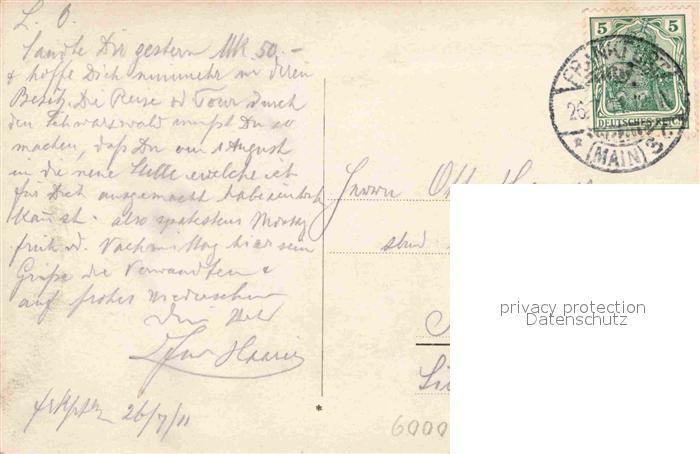 L. O.
Sandte Dir gestern Mk 50.–
& hoffe Dich nunmehr in deren
Besitz. Die Reise od Tour durch
den Schwarzwald mußt Du so
machen, daß Du am 1 August
in die neue Stelle welche ich
für Dich ausgemacht habe
kannst. also spätestens Montag
früh od. Nachmittag hier sein
Grüße die Verwandten &
auf frohes Wiedersehen
Dein
26/7/11
Herrn
stud
6000
5 5
DEUTSCHES REICH
FRANKFURT
26.
(MAIN) 3
*
privacy protection
Datenschutz